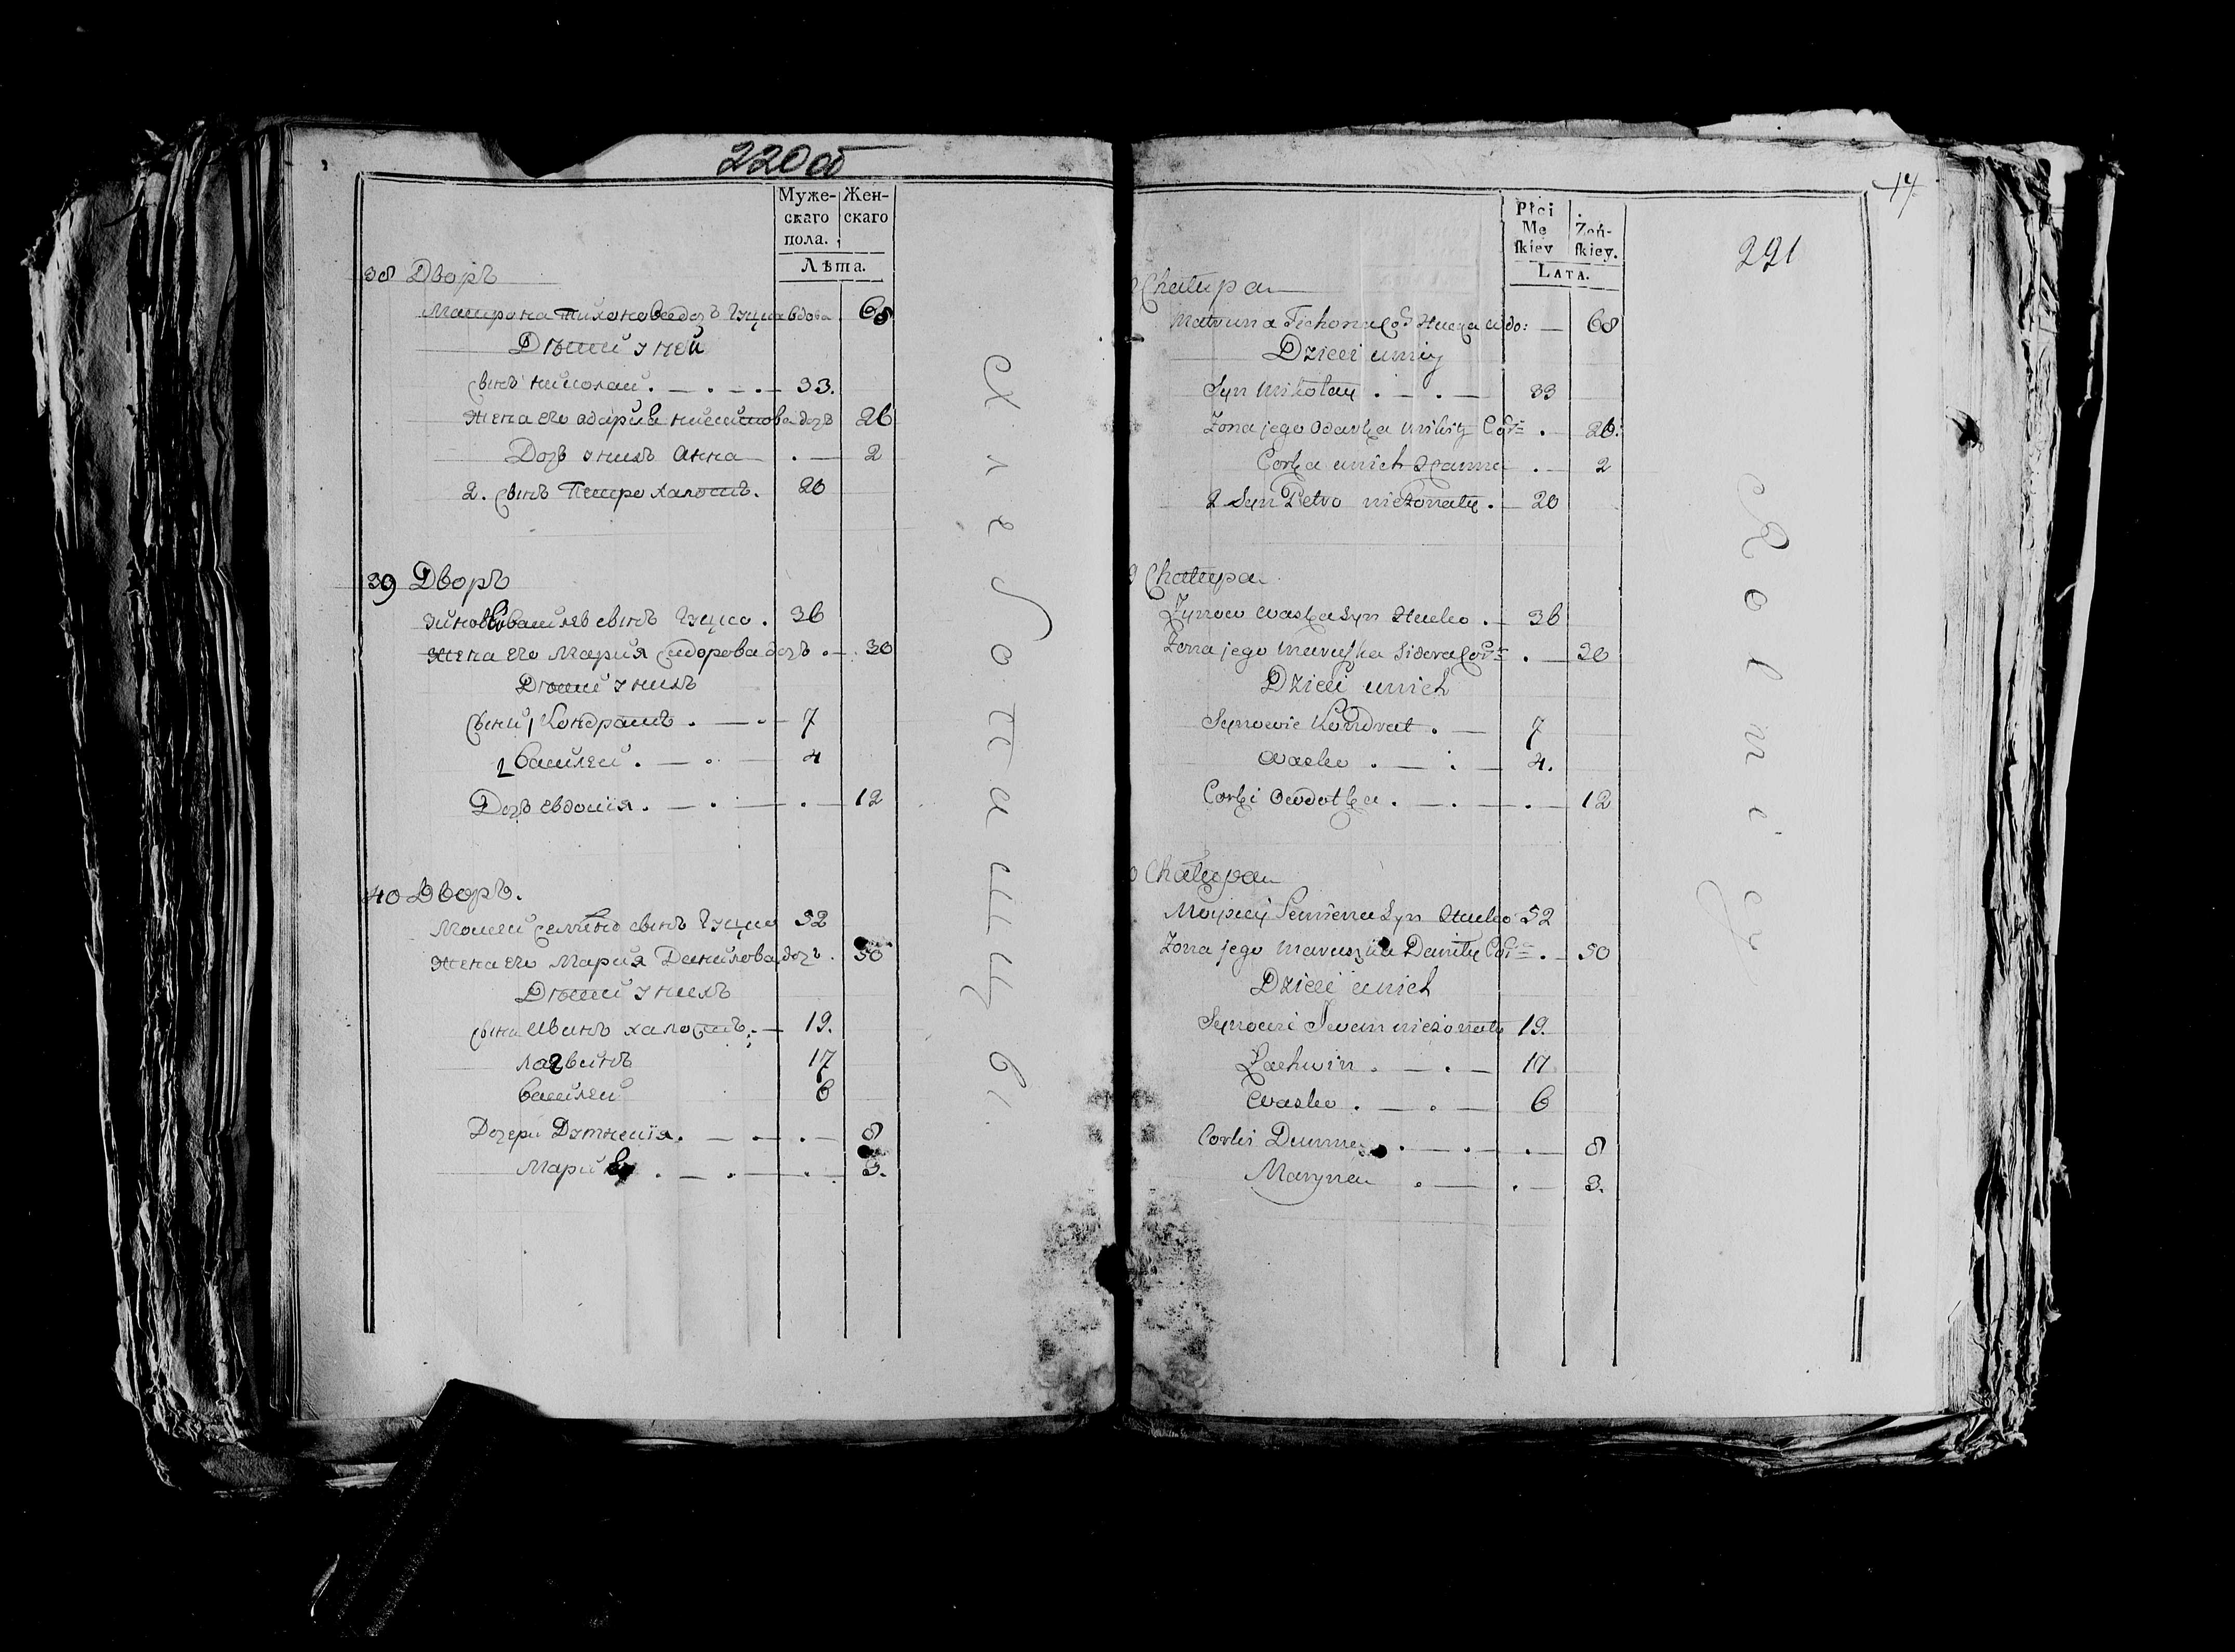 220об
Муже-
скаго
пола.
Жен-
скаго
Лѣта.
38 Дворъ
Матрона Тихонова дочь Гуцка вдова 68
Дѣти у ней
сынъ Николай . — . — . 33.
жена его Одария Никитова дочъ 26
Дочъ у нихъ Анна . — 2
2. сынъ Петро халостъ. 20
39 Дворъ
Зиновъ Василяв сынъ Гуцко . 36
жена его Мария Сидорова дочъ . — . 30
Дѣти у нихъ
сыни 1 Кондратъ . — . 7
2 Василей . — . — 4
Дочъ Евдокія . — . — . — 12
40 Дворъ.
Мосей Семено сынъ Гуцко 52
жена его Мария Данилова дочъ . 50
Дѣти у нихъ
сыни Иванъ халостъ . — 19.
Логвинъ 17
Василей 6
Дочери — . — . — 8
Мари . — . — . 3.
Хлѣбопашцы.
14.
221
Płci
Mę
skiey
Żeń-
skiey.
LATA.
Chałupa
Matruna Tichona Cór Hucka wdo: — 68
Dzieci u niey
Syn Mikołay . — . — 33
Żona jego Odarka Mikity Cór: . 26:
Corka u nich Hanna . — 2
2 Syn Petro nieżonaty . — 20
9 Chałupa
Zynow Waska Syn Hucko . — 36
Żona jego Maruszka Sidora Cór: . — 30
Dzieci u nich
Synowie Kondrat . — 7
Wasko . — . — 4.
Corki Owdotka . — . — . — 12
0 Chałupa
Moysiey Semena Syn Hucko 52
Żona jego Maruszka Daniły Cór: . — 50
Dzieci u nich
Synowi Iwan nieżonaty 19.
Łachwin . — . — 17
Wasko . — . — 6
Corki — . — . — 8
Maryna . — . — 3.
Rolnicy